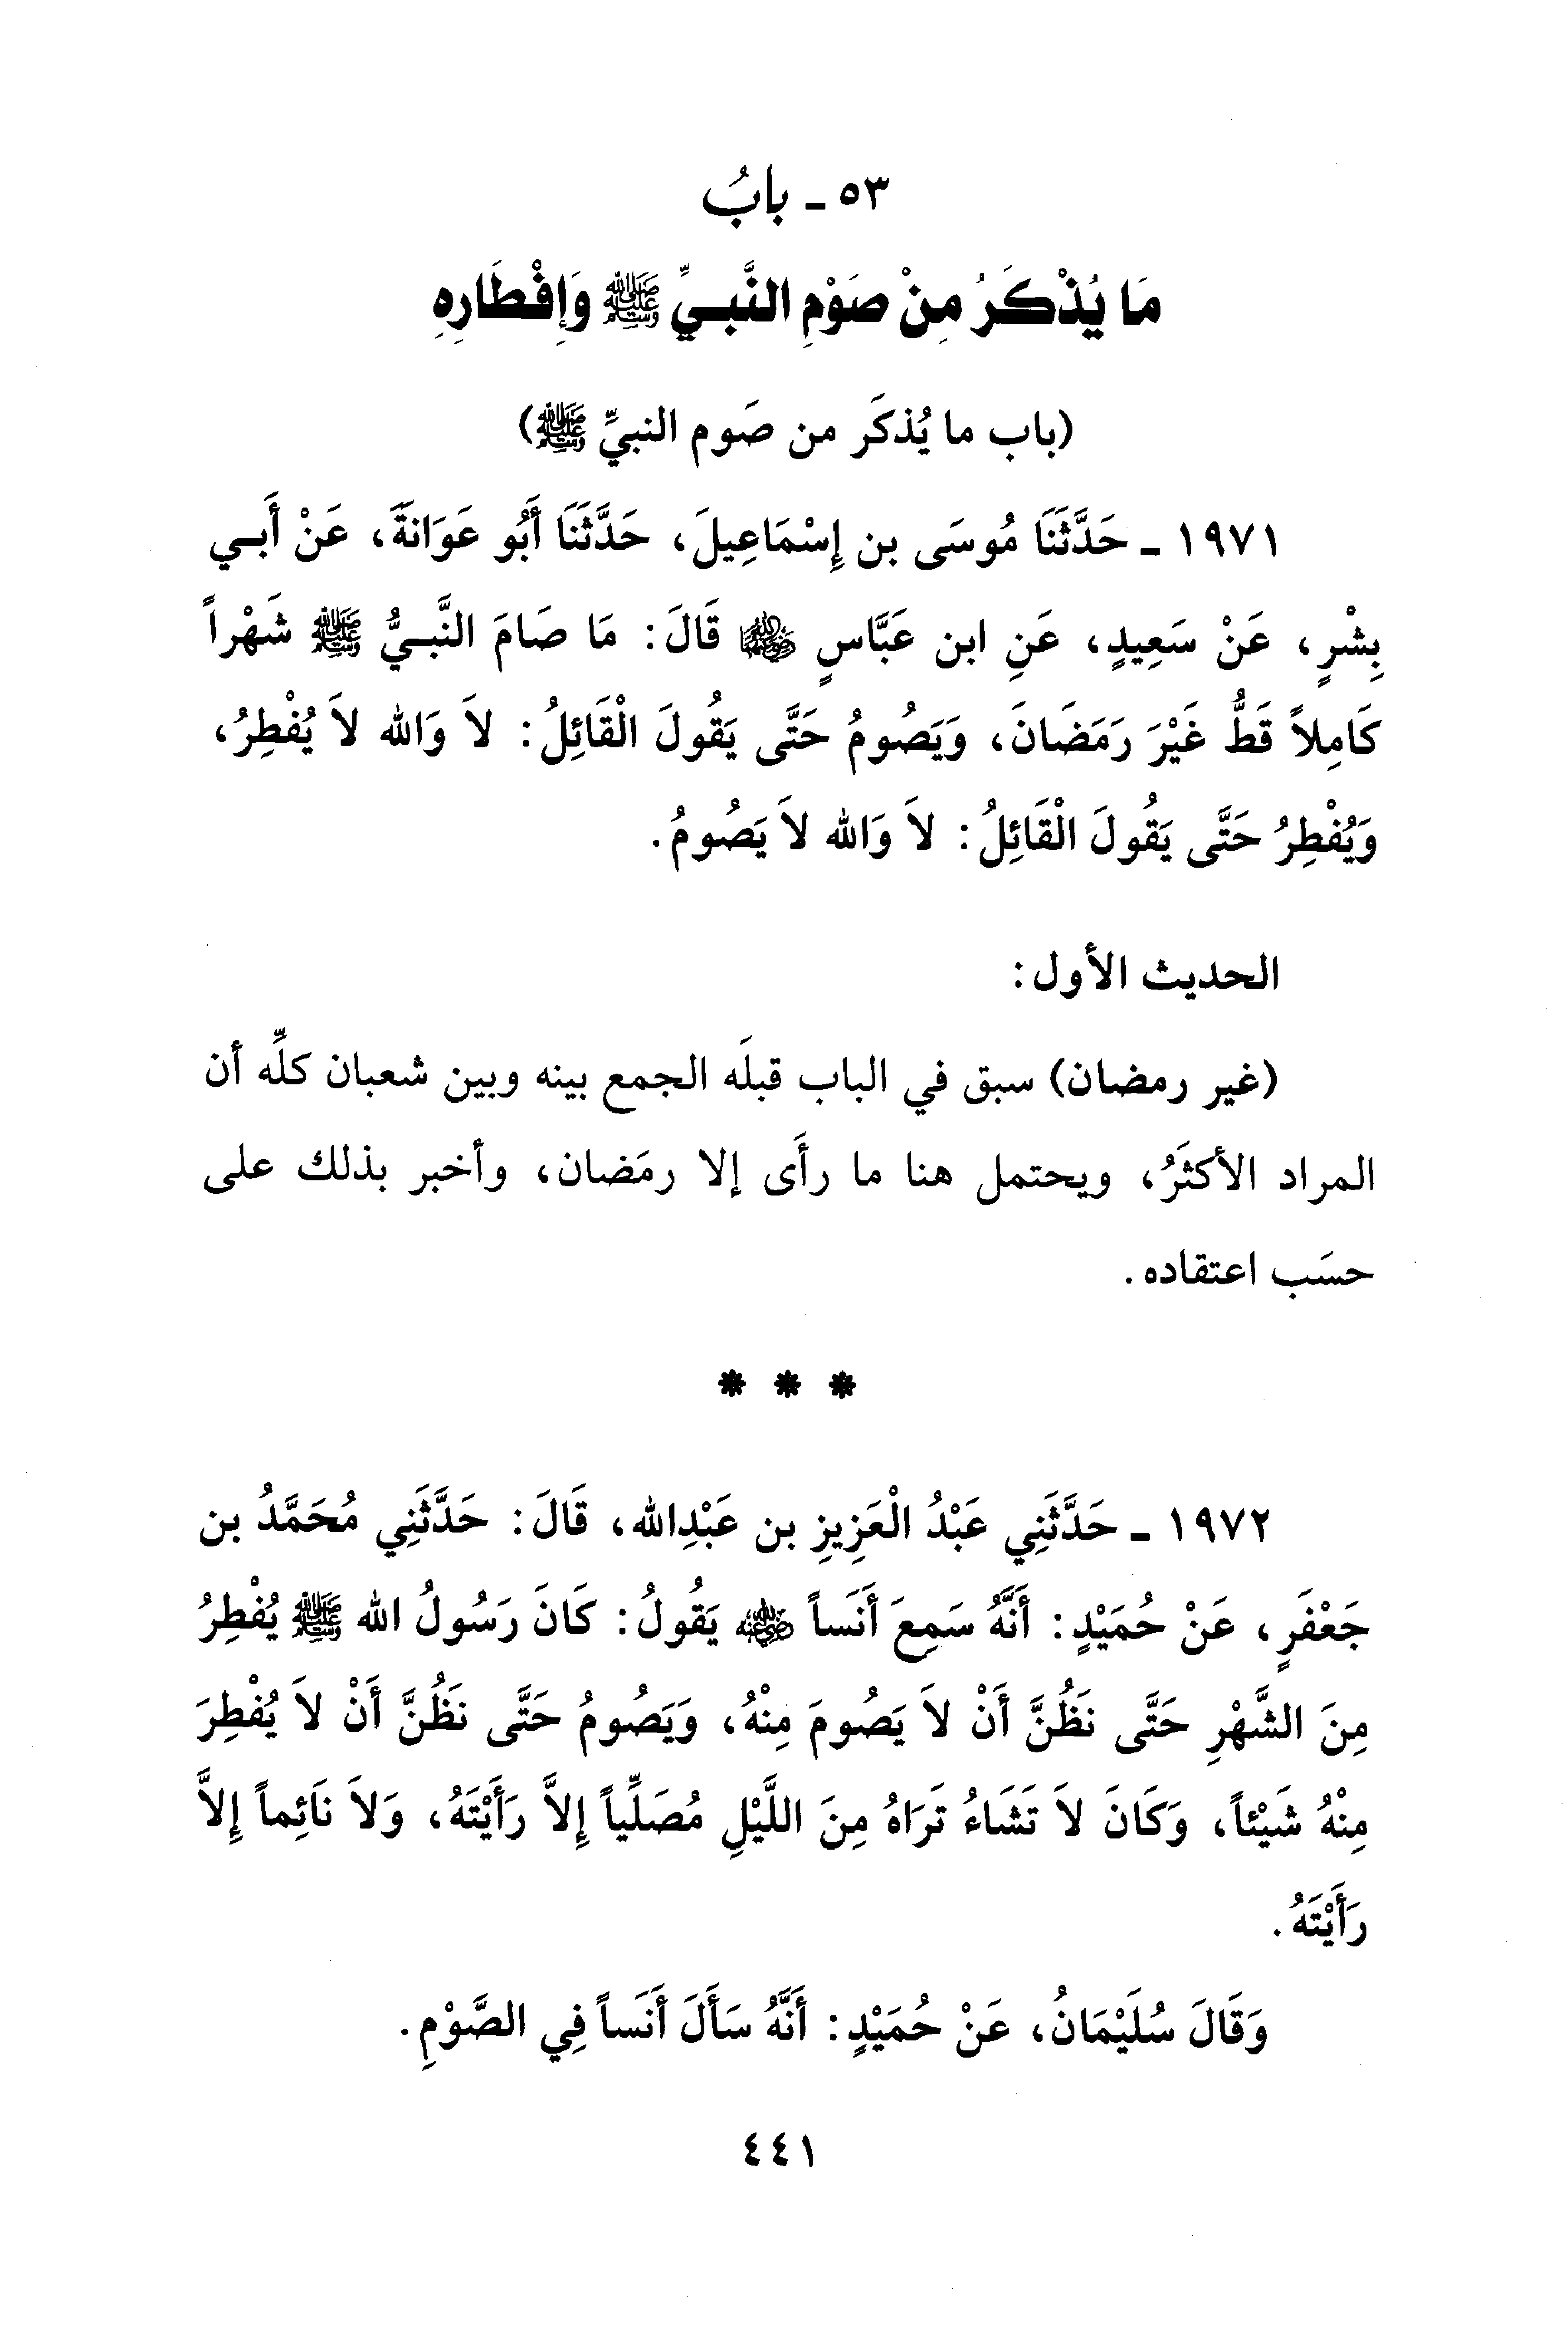 ٥٣ - بابُ
مَا يُذْكَرُ مِنْ صَوْمِ النَّبِيِّ ﷺ وَإِفْطَارِهِ
(باب ما يُذكَر من صَوم النبيِّ ﷺ)
١٩٧١ - حَدَّثَنَا مُوسَى بن إِسْمَاعِيلَ، حَدَّثَنَا أَبُو عَوَانَةَ، عَنْ أَبِي
بِشْرٍ، عَنْ سَعِيدٍ، عَنِ ابن عَبَّاسٍ رضي الله عنهما قَالَ: مَا صَامَ النَّبِيُّ ﷺ شَهْراً
كَامِلاً قَطُّ غَيْرَ رَمَضَانَ، وَيَصُومُ حَتَّى يَقُولَ الْقَائِلُ: لاَ وَالله لاَ يُفْطِرُ،
وَيُفْطِرُ حَتَّى يَقُولَ الْقَائِلُ: لاَ وَالله لاَ يَصُومُ.
الحديث الأول:
(غير رمضان) سبق في الباب قبلَه الجمع بينه وبين شعبان كلِّه أن
المراد الأكثَرُ، ويحتمل هنا ما رأَى إلا رمَضان، وأخبر بذلك على
حسَب اعتقاده.
* * *
١٩٧٢ - حَدَّثَنِي عَبْدُ الْعَزِيزِ بن عَبْدِالله، قَالَ: حَدَّثَنِي مُحَمَّدُ بن
جَعْفَرٍ، عَنْ حُمَيْدٍ: أَنَّهُ سَمِعَ أَنَساً رضي الله عنه يَقُولُ: كَانَ رَسُولُ الله ﷺ يُفْطِرُ
مِنَ الشَّهْرِ حَتَّى نَظُنَّ أَنْ لاَ يَصُومَ مِنْهُ، وَيَصُومُ حَتَّى نَظُنَّ أَنْ لاَ يُفْطِرَ
مِنْهُ شَيْئاً، وَكَانَ لاَ تَشَاءُ تَرَاهُ مِنَ اللَّيْلِ مُصَلِّياً إِلاَّ رَأَيْتَهُ، وَلاَ نَائِماً إِلاَّ
رَأَيْتَهُ.
وَقَالَ سُلَيْمَانُ، عَنْ حُمَيْدٍ: أَنَّهُ سَأَلَ أَنَساً فِي الصَّوْمِ.
٤٤١